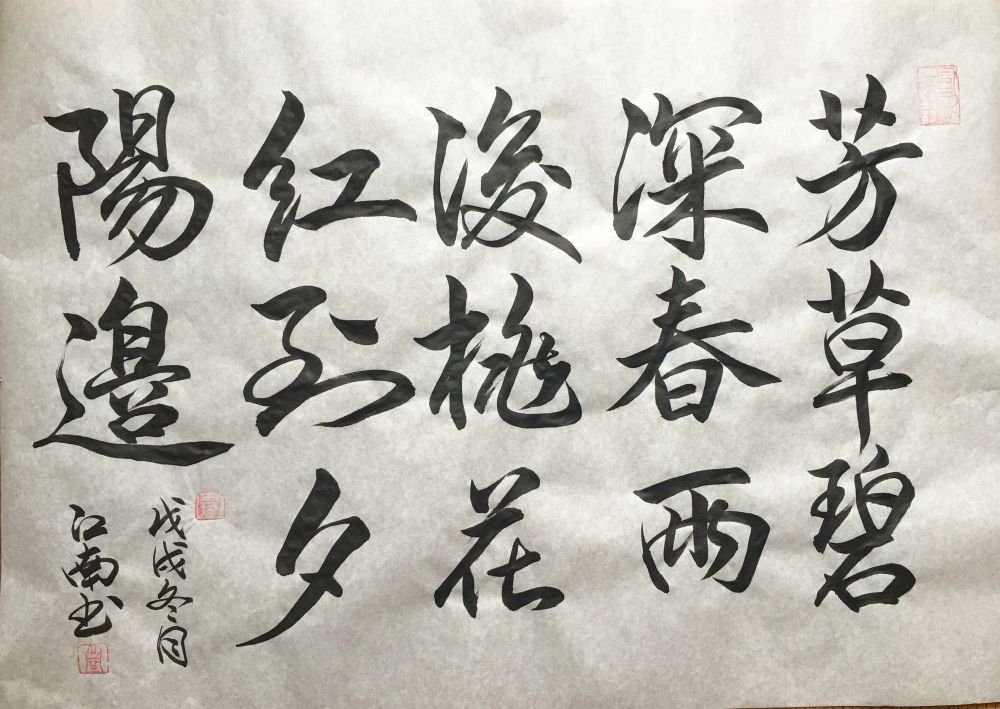 芳草碧
深春雨
後桃花
紅到夕
陽邉
戊戌冬月
江南书